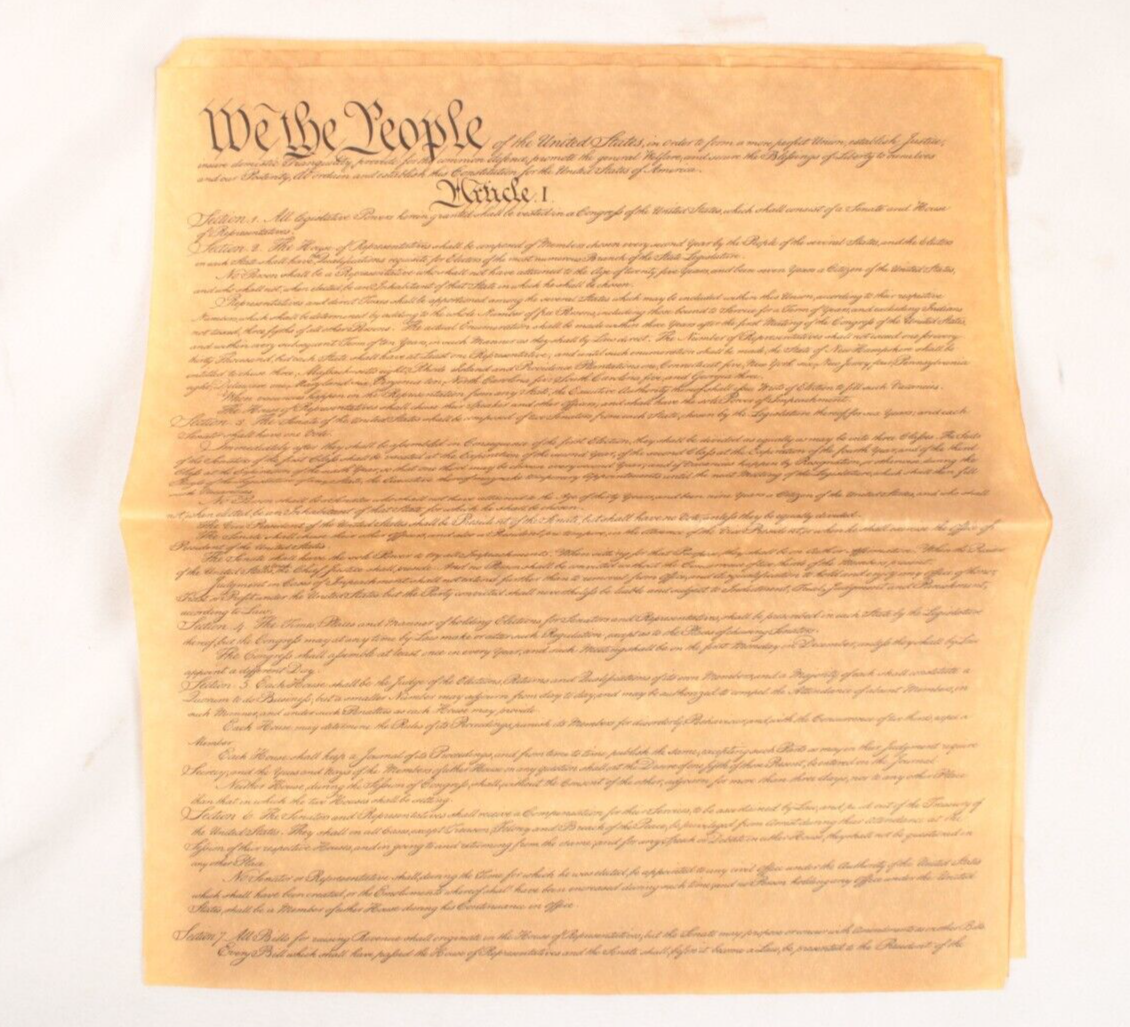 We the People of the United States, in order to form a more perfect Union, establish Justice,
insure domestic Tranquility, provide for the common defence, promote the general Welfare, and secure the Blessings of Liberty to ourselves
and our Posterity, do ordain and establish this Constitution for the United States of America.
Article I.
Section. 1. All legislative Powers herein granted shall be vested in a Congress of the United States, which shall consist of a Senate and House
of Representatives.
Section. 2. The House of Representatives shall be composed of Members chosen every second Year by the People of the several States, and the Electors
in each State shall have Qualifications requisite for Electors of the most numerous Branch of the State Legislature.
No Person shall be a Representative who shall not have attained to the Age of twenty five Years, and been seven Years a Citizen of the United States,
and who shall not, when elected, be an Inhabitant of that State in which he shall be chosen.
Representatives and direct Taxes shall be apportioned among the several States which may be included within this Union, according to their respective
Numbers, which shall be determined by adding to the whole Number of free Persons, including those bound to Service for a Term of Years, and excluding Indians
not taxed, three fifths of all other Persons. The actual Enumeration shall be made within three Years after the first Meeting of the Congress of the United States,
and within every subsequent Term of ten Years, in such Manner as they shall by Law direct. The Number of Representatives shall not exceed one for every
thirty Thousand, but each State shall have at Least one Representative; and until such enumeration shall be made, the State of New Hampshire shall be
entitled to chuse three, Massachusetts eight, Rhode Island and Providence Plantations one, Connecticut five, New York six, New Jersey four, Pennsylvania
eight, Delaware one, Maryland six, Virginia ten, North Carolina five, South Carolina five, and Georgia three.
When vacancies happen in the Representation from any State, the Executive Authority thereof shall issue Writs of Election to fill such Vacancies.
The House of Representatives shall chuse their Speaker and other Officers; and shall have the sole Power of Impeachment.
Section. 3. The Senate of the United States shall be composed of two Senators from each State, chosen by the Legislature thereof, for six Years; and each
Senator shall have one Vote.
Immediately after they shall be assembled in Consequence of the first Election, they shall be divided as equally as may be into three Classes. The Seats
of the Senators of the first Class shall be vacated at the Expiration of the second Year, of the second Class at the Expiration of the fourth Year, and of the third
No Person shall be a Senator who shall not have attained to the Age of thirty Years, and been nine Years a Citizen of the United States, and who shall
not, when elected, be an Inhabitant of that State for which he shall be chosen.
The Vice President of the United States shall be President of the Senate, but shall have no Vote, unless they be equally divided.
The Senate shall chuse their other Officers, and also a President pro tempore, in the Absence of the Vice President, or when he shall exercise the Office of
President of the United States.
The Senate shall have the sole Power to try all Impeachments. When sitting for that Purpose, they shall be on Oath or Affirmation. When the President
of the United States is tried, the Chief Justice shall preside: And no Person shall be convicted without the Concurrence of two thirds of the Members present.
Judgment in Cases of Impeachment shall not extend further than to removal from Office, and disqualification to hold and enjoy any Office of honor,
Trust or Profit under the United States: but the Party convicted shall nevertheless be liable and subject to Indictment, Trial, Judgment and Punishment,
according to Law.
Section. 4. The Times, Places and Manner of holding Elections for Senators and Representatives, shall be prescribed in each State by the Legislature
thereof; but the Congress may at any time by Law make or alter such Regulations, except as to the Places of chusing Senators.
The Congress shall assemble at least once in every Year, and such Meeting shall be on the first Monday in December, unless they shall by Law
appoint a different Day.
Section. 5. Each House shall be the Judge of the Elections, Returns and Qualifications of its own Members, and a Majority of each shall constitute a
Quorum to do Business; but a smaller Number may adjourn from day to day, and may be authorized to compel the Attendance of absent Members, in
such Manner, and under such Penalties as each House may provide.
Each House may determine the Rules of its Proceedings, punish its Members for disorderly Behaviour, and, with the Concurrence of two thirds, expel a
Member.
Each House shall keep a Journal of its Proceedings, and from time to time publish the same, excepting such Parts as may in their Judgment require
Secrecy; and the Yeas and Nays of the Members of either House on any question shall, at the Desire of one fifth of those Present, be entered on the Journal.
Neither House, during the Session of Congress, shall, without the Consent of the other, adjourn for more than three days, nor to any other Place
than that in which the two Houses shall be sitting.
Section. 6. The Senators and Representatives shall receive a Compensation for their Services, to be ascertained by Law, and paid out of the Treasury of
the United States. They shall in all Cases, except Treason, Felony and Breach of the Peace, be privileged from Arrest during their Attendance at the
Session of their respective Houses, and in going to and returning from the same; and for any Speech or Debate in either House, they shall not be questioned in
any other Place.
No Senator or Representative shall, during the Time for which he was elected, be appointed to any civil Office under the Authority of the United States
which shall have been created, or the Emoluments whereof shall have been encreased during such time; and no Person holding any Office under the United
States, shall be a Member of either House during his Continuance in Office.
Section 7. All Bills for raising Revenue shall originate in the House of Representatives; but the Senate may propose or concur with Amendments as on other Bills.
Every Bill which shall have passed the House of Representatives and the Senate shall, before it become a Law, be presented to the President of the